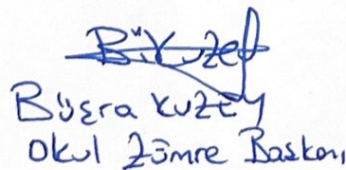 B.Kuzey
Büşra Kuzey
Okul Zümre Başkanı